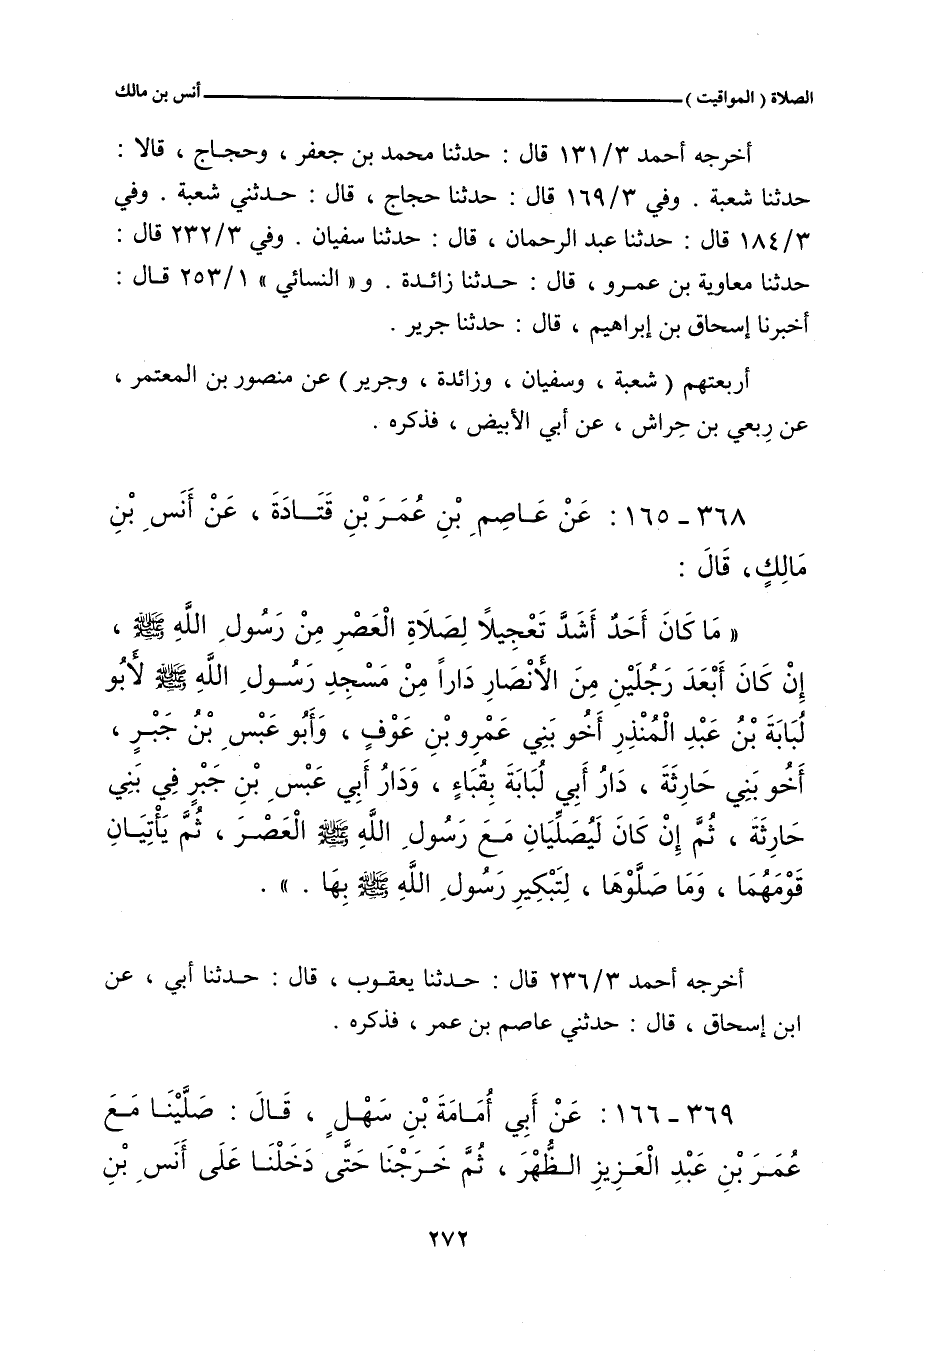 الصلاة ( المواقيت ) ــــــــــــــــــــــــــــــــــــــــ أنس بن مالك
أخرجه أحمد ١٣١/٣ قال : حدثنا محمد بن جعفر ، وحجـاج ، قالا :
حدثنا شعبة . وفي ١٦٩/٣ قال : حدثنا حجاج ، قال : حـدثني شعبة . وفي
١٨٤/٣ قال : حدثنا عبد الرحمان ، قال : حدثنا سفيان . وفي ٢٣٢/٣ قال :
حدثنا معاوية بن عمـرو ، قال : حـدثنا زائـدة . و« النسائي » ٢٥٣/١ قـال :
أخبرنا إسحاق بن إبراهيم ، قال : حدثنا جرير .
أربعتهم ( شعبة ، وسفيان ، وزائدة ، وجرير ) عن منصور بن المعتمر ،
عن رِبعي بن حِراش ، عن أبي الأبيض ، فذكره .
٣٦٨ ـ ١٦٥ : عَنْ عَـاصِمِ بْنِ عُمَـرَ بْنِ قَتَـادَةَ ، عَنْ أَنَسِ بْنِ
مَالِكٍ، قَالَ :
« مَا كَانَ أَحَدٌ أَشَدَّ تَعْجِيلًا لِصَلَاةِ الْعَصْرِ مِنْ رَسُولِ اللَّهِ ﷺ ،
إِنْ كَانَ أَبْعَدَ رَجُلَيْنِ مِنَ الأَنْصَارِ دَاراً مِنْ مَسْجِدِ رَسُـولِ اللَّهِ ﷺ لَأَبُو
لُبَابَةَ بْنُ عَبْدِ الْمُنْذِرِ أَخُو بَنِي عَمْرِو بْنِ عَوْفٍ ، وَأَبُو عَبْسِ بْنُ جَبْـرٍ ،
أَخُو بَنِي حَارِثَةَ ، دَارُ أَبِي لُبَابَةَ بِقُبَاءٍ ، وَدَارُ أَبِي عَبْسِ بْنِ جَبْرٍ فِي بَنِي
حَارِثَةَ ، ثُمَّ إِنْ كَانَ لَيُصَلِّيَانِ مَـعَ رَسُولِ اللَّهِ ﷺ الْعَصْـرَ ، ثُمَّ يَأْتِيَـانِ
قَوْمَهُمَا ، وَمَا صَلَّوْهَا ، لِتَبْكِيرِ رَسُولِ اللَّهِ ﷺ بِهَا . » .
أخرجه أحمد ٢٣٦/٣ قال : حـدثنا يعقـوب ، قال : حـدثنا أبي ، عن
ابن إسحاق ، قال : حدثني عاصم بن عمر ، فذكره .
٣٦٩ ـ ١٦٦ : عَنْ أَبِي أُمَـامَةَ بْنِ سَهْـلٍ ، قَـالَ : صَلَّيْنَـا مَـعَ
عُمَـرَ بْنِ عَبْدِ الْعَـزِيزِ الـظُّهْرَ ، ثُمَّ خَـرَجْنَا حَتَّى دَخَلْنَـا عَلَى أَنَسِ بْنِ
٢٧٢